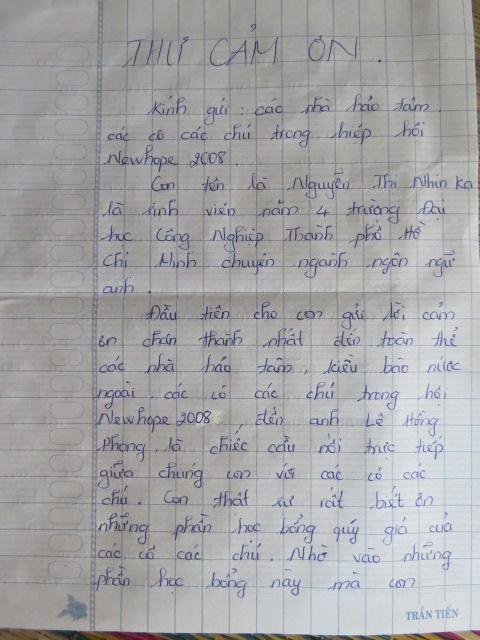 THƯ CẢM ƠN.
Kính gửi: các nhà hảo tâm.
các cô các chú trong hiệp hội
Newhope 2008.
Con tên là Nguyễn Thị Nhin Ka
là sinh viên năm 4 trường Đại
học Công Nghiệp Thành phố Hồ
Chí Minh chuyên ngành ngôn ngữ
anh.
Đầu tiên cho con gửi lời cảm
ơn chân thành nhất đến toàn thể
các nhà hảo tâm, kiều bào nước
ngoài, các cô các chú trong hội
Newhope 2008, đến anh Lê Hồng
Phong, là chiếc cầu nối trực tiếp
giữa chúng con với các cô các
chú. Con thật sự rất biết ơn
những phần học bổng quý giá của
các cô các chú. Nhờ vào những
phần học bổng này mà con
TRẦN TIẾN